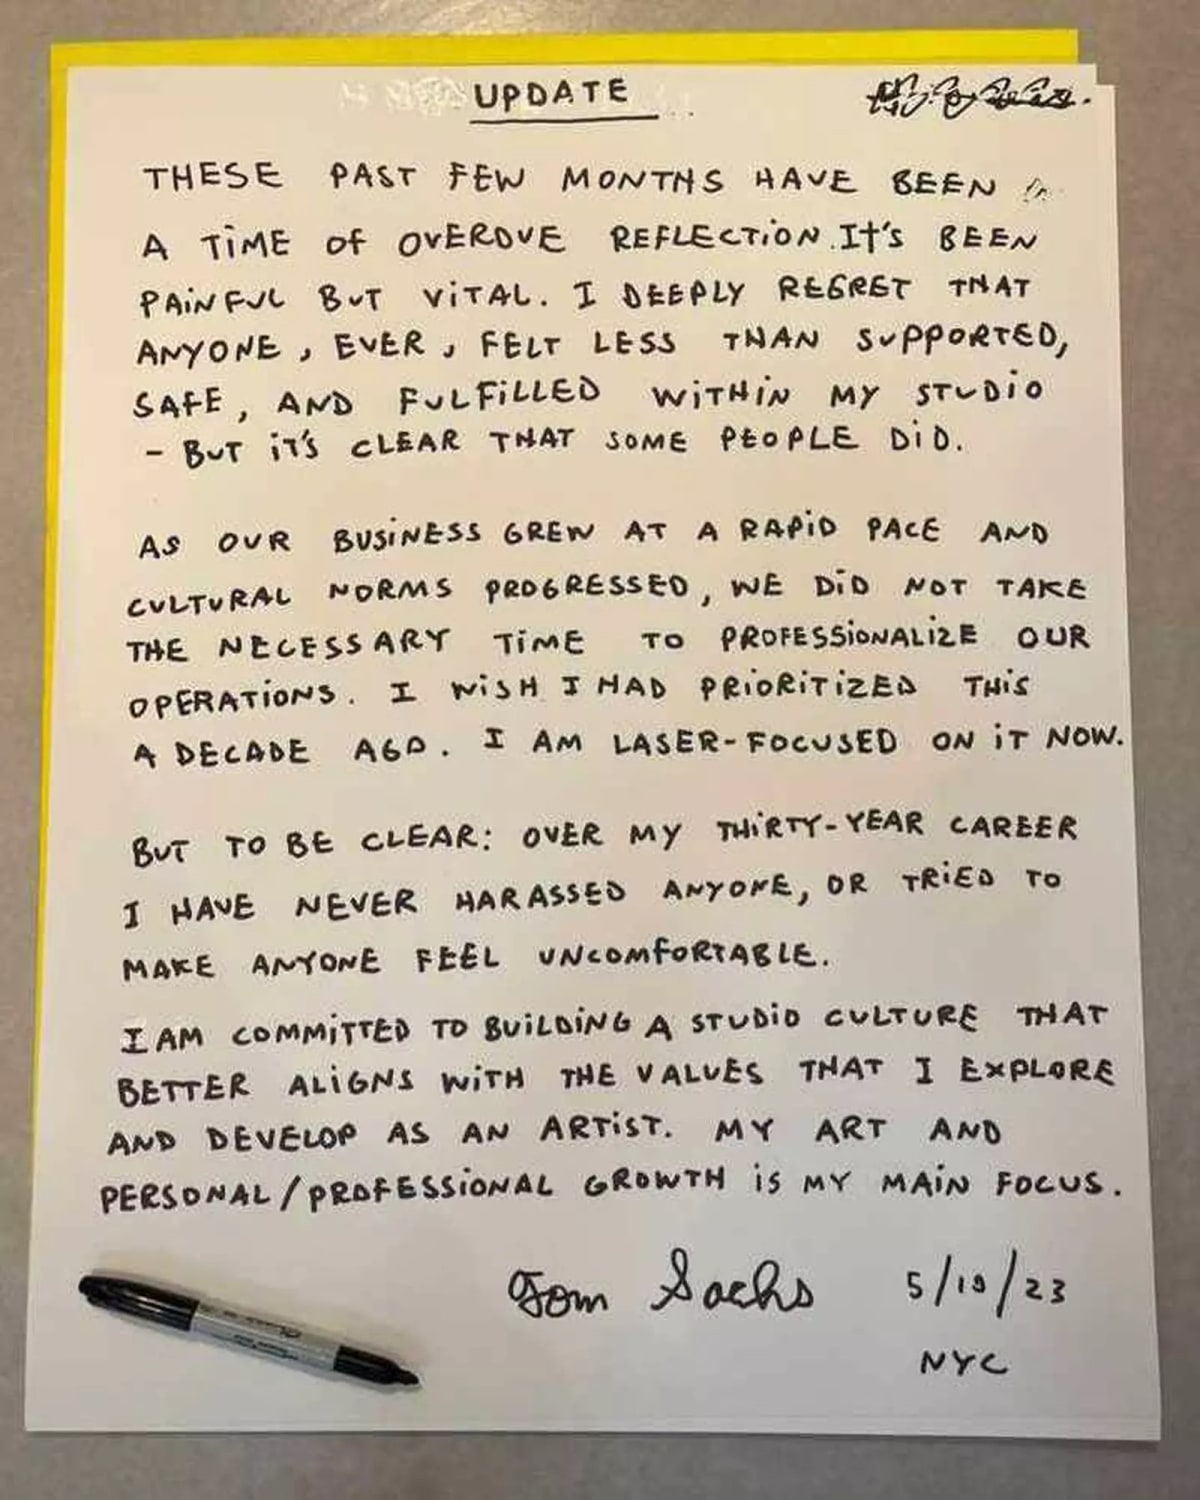 UPDATE
THESE PAST FEW MONTHS HAVE BEEN
A TIME OF OVERDUE REFLECTION. IT'S BEEN
PAINFUL BUT VITAL. I DEEPLY REGRET THAT
ANYONE, EVER, FELT LESS THAN SUPPORTED,
SAFE, AND FULFILLED WITHIN MY STUDIO
- BUT IT'S CLEAR THAT SOME PEOPLE DID.
AS OUR BUSINESS GREW AT A RAPID PACE AND
CULTURAL NORMS PROGRESSED, WE DID NOT TAKE
THE NECESSARY TIME TO PROFESSIONALIZE OUR
OPERATIONS. I WISH I HAD PRIORITIZED THIS
A DECADE AGO. I AM LASER-FOCUSED ON IT NOW.
BUT TO BE CLEAR: OVER MY THIRTY-YEAR CAREER
I HAVE NEVER HARASSED ANYONE, OR TRIED TO
MAKE ANYONE FEEL UNCOMFORTABLE.
I AM COMMITTED TO BUILDING A STUDIO CULTURE THAT
BETTER ALIGNS WITH THE VALUES THAT I EXPLORE
AND DEVELOP AS AN ARTIST. MY ART AND
PERSONAL/PROFESSIONAL GROWTH IS MY MAIN FOCUS.
Tom Sachs 5/19/23
NYC